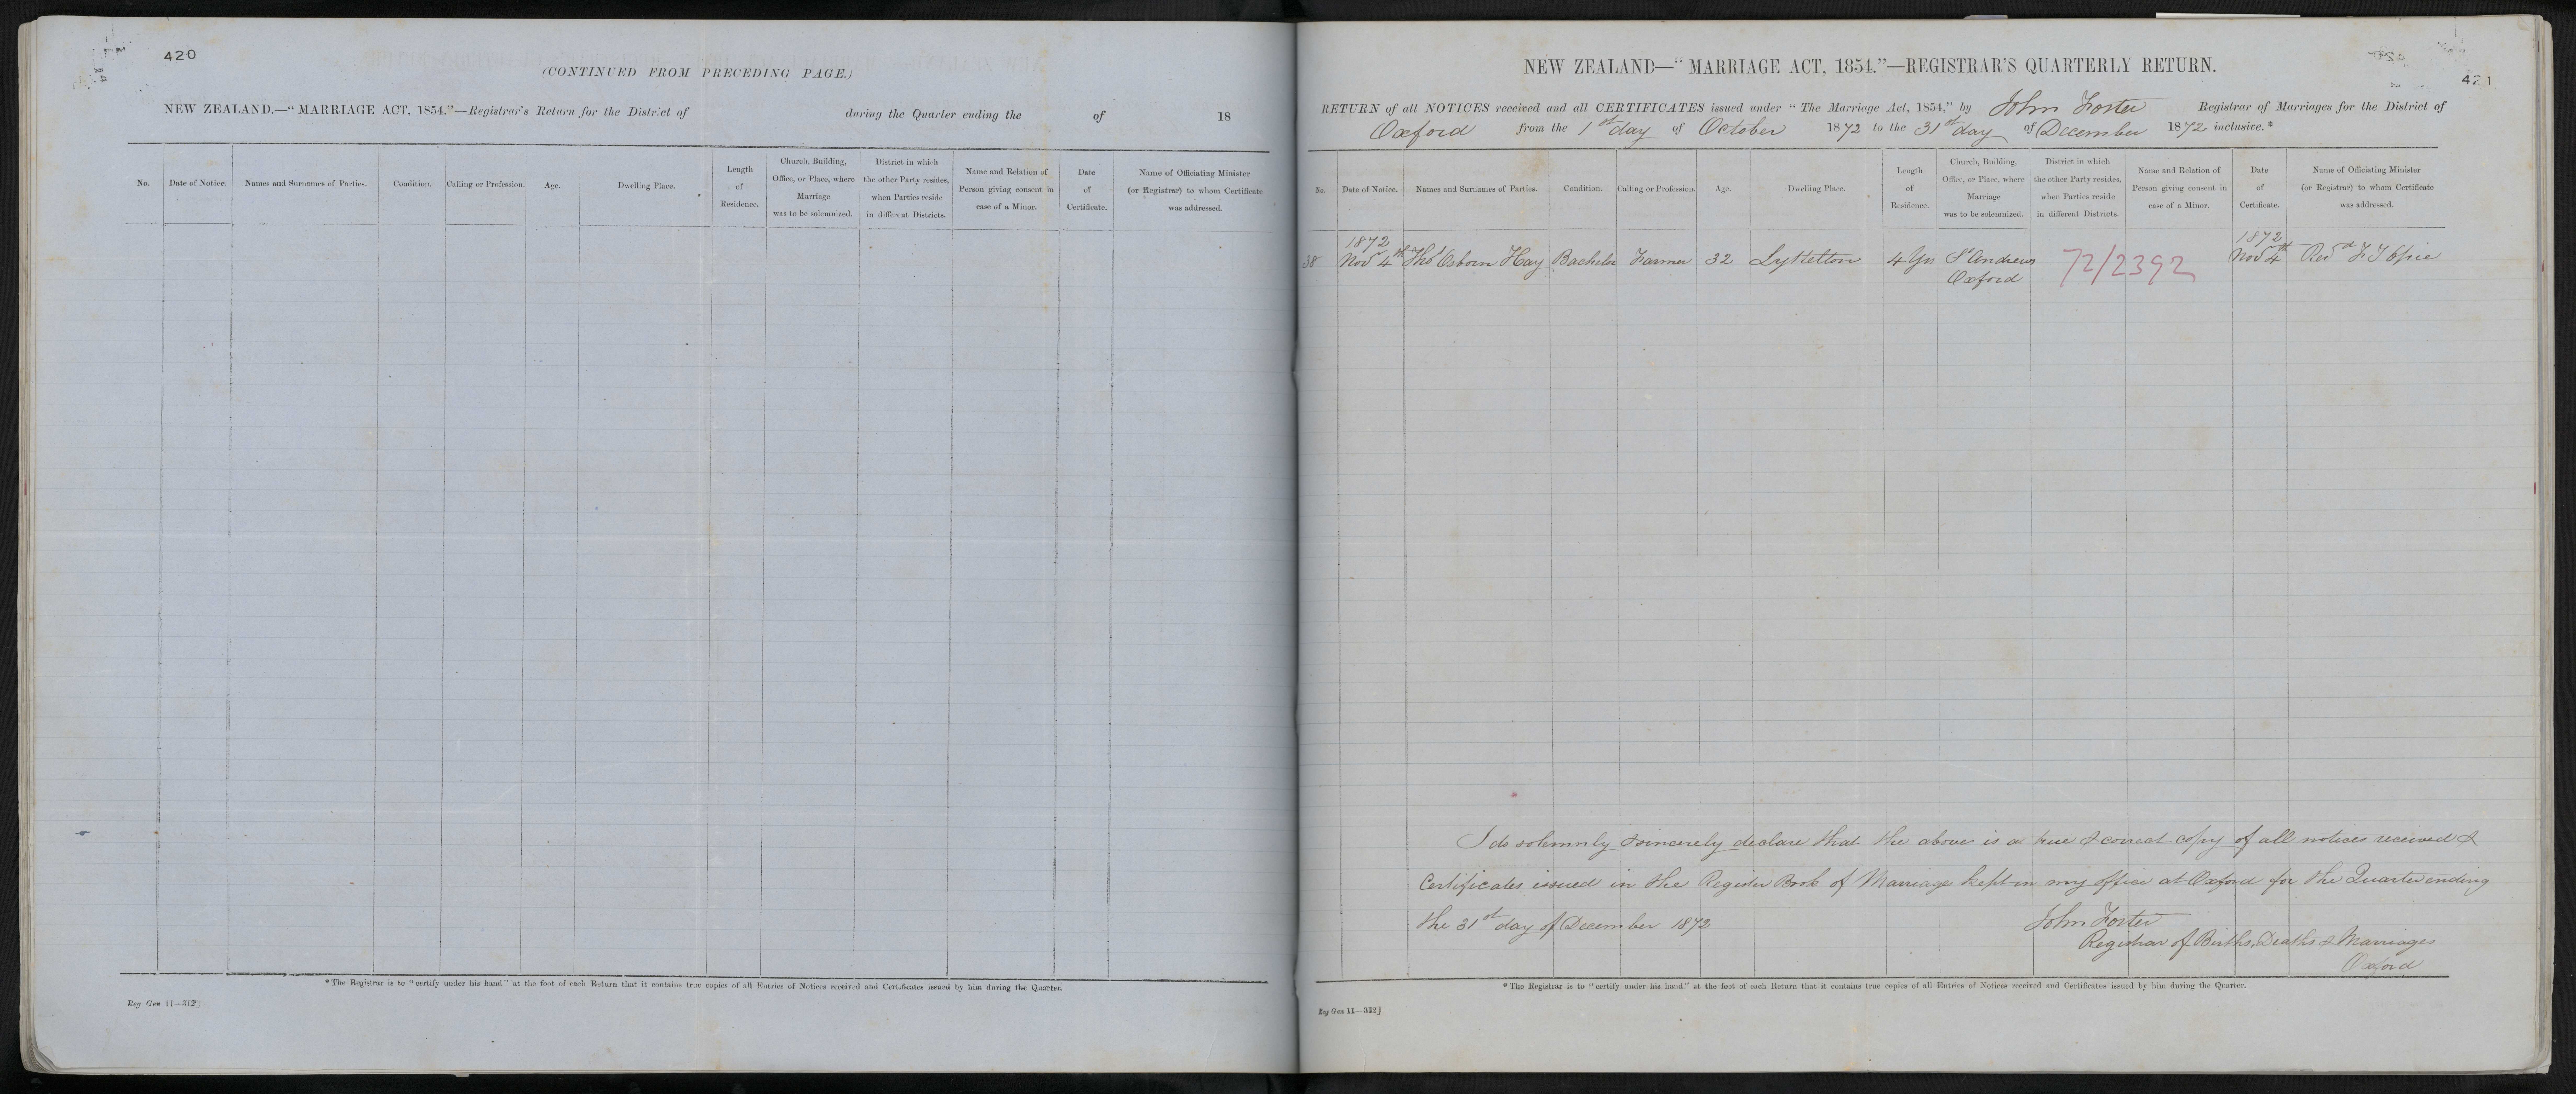 420
(CONTINUED FROM PRECEDING PAGE.)
NEW ZEALAND.—"MARRIAGE ACT, 1854."—Registrar's Return for the District of during the Quarter ending the of 18
No. Date of Notice. Names and Surnames of Parties. Condition. Calling or Profession. Age. Dwelling Place. Length of Residence. Church, Building, Office, or Place, where Marriage was to be solemnized. District in which the other Party resides, when Parties reside in different Districts. Name and Relation of Person giving consent in case of a Minor. Date of Certificate. Name of Officiating Minister (or Registrar) to whom Certificate was addressed.
*The Registrar is to "certify under his hand" at the foot of each Return that it contains true copies of all Entries of Notices received and Certificates issued by him during the Quarter.
Reg Gen 11—312]
421
NEW ZEALAND—"MARRIAGE ACT, 1854."—REGISTRAR'S QUARTERLY RETURN.
RETURN of all NOTICES received and all CERTIFICATES issued under "The Marriage Act, 1854," by John Foster Registrar of Marriages for the District of
Oxford from the 1st day of October 1872 to the 31st day of December 1872 inclusive.*
No. Date of Notice. Names and Surnames of Parties. Condition. Calling or Profession. Age. Dwelling Place. Length of Residence. Church, Building, Office, or Place, where Marriage was to be solemnized. District in which the other Party resides, when Parties reside in different Districts. Name and Relation of Person giving consent in case of a Minor. Date of Certificate. Name of Officiating Minister (or Registrar) to whom Certificate was addressed.
1872 1872
38 Nov 4th Thos Osborn Hay Bachelor Farmer 32 Lyttelton 4 Yrs St Andrews 72/2392 Nov 4th Revd F T Opie
Oxford
I do solemnly & sincerely declare that the above is a true & correct copy of all notices received &
Certificates issued in the Register Book of Marriage kept in my office at Oxford for the Quarter ending
the 31st day of December 1872
John Foster
Registrar of Births, Deaths & Marriages
Oxford
*The Registrar is to "certify under his hand" at the foot of each Return that it contains true copies of all Entries of Notices received and Certificates issued by him during the Quarter.
Reg Gen 11—312]